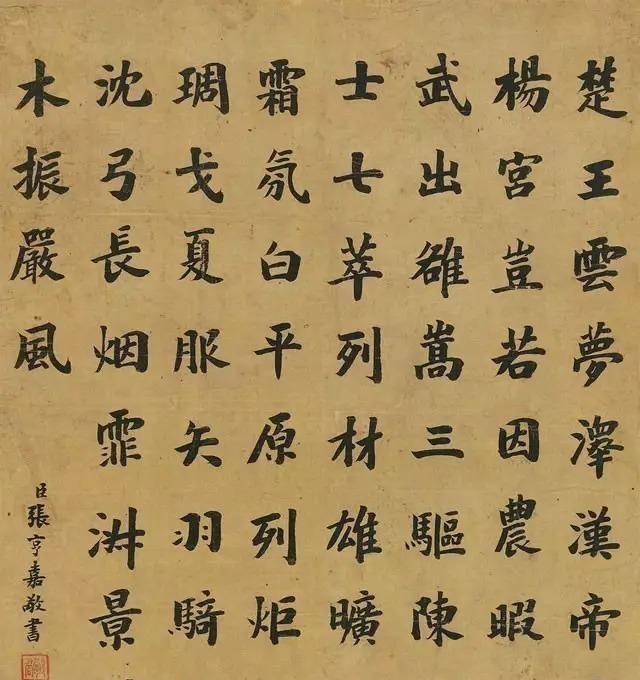 楚王雲夢澤漢帝
楊宮豈若因農暇
武出嵩三驅陳
士七萃列材雄曠
霜氛白平原列炬
琱戈夏服矢羽騎
沈弓長烟霏景
木振嚴風
臣張亨嘉敬書